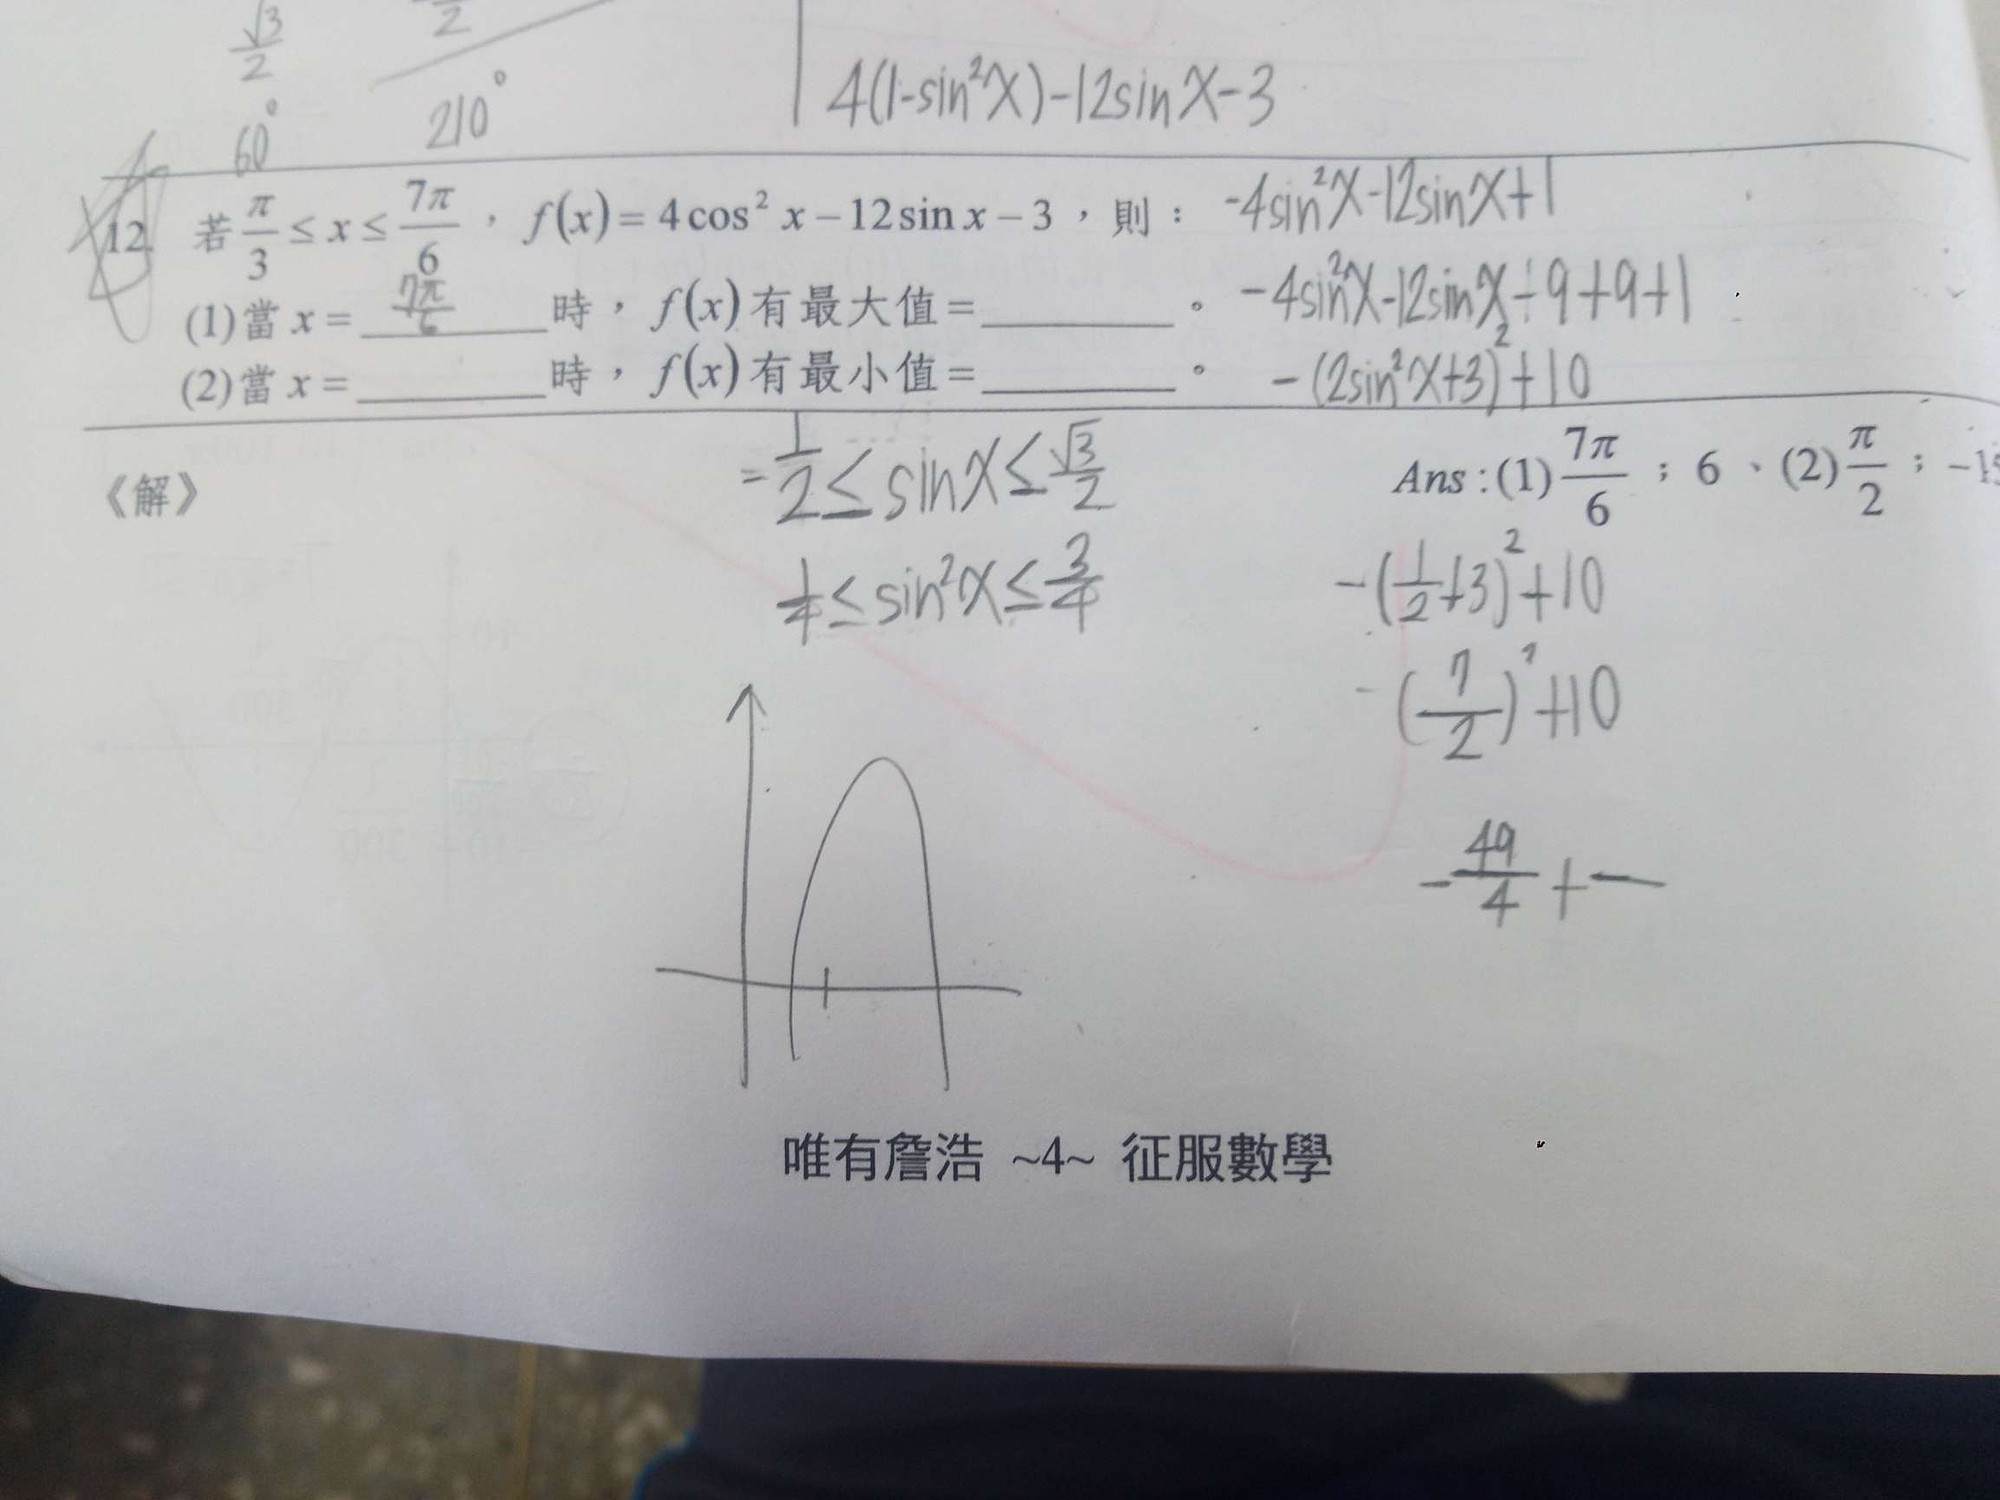 √3/2
2
60°
210°
4(1-sin²x)-12sinx-3
12. 若 π/3 ≤ x ≤ 7π/6 ，f(x) = 4cos² x − 12 sin x − 3，則：
-4sin²x-12sinx+1
(1)當 x = 7π/6 時，f(x) 有最大值 = ______。
-4sin²x-12sinx-9+9+1
(2)當 x = ______ 時，f(x) 有最小值 = ______。
-(2sin²x+3)²+10
《解》
-1/2 ≤ sinx ≤ √3/2
Ans : (1) 7π/6 ；6、(2) π/2 ；−15
1/4 ≤ sin²x ≤ 3/4
-(1/2+3)²+10
-(7/2)²+10
-49/4+—
唯有詹浩 ~4~ 征服數學